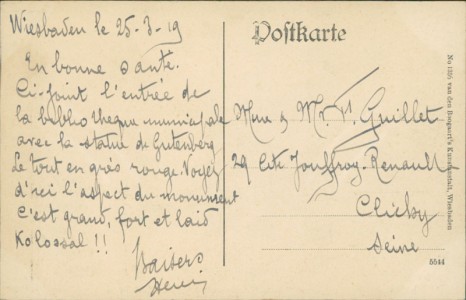 Wiesbaden le 25-3-19
En bonne santé.
Ci-joint l'entrée de
la bibliothèque municipale
avec la statue de Gutenberg
Le tout en grès rouge. Voyez
d'ici l'aspect du monument
C'est grand, fort et laid
Kolossal !!
Baisers
Henri
Postkarte
Mme & Mr. Guillet
29 Cité Jouffroy-Renault
Clichy
Seine
5544
Wiesbaden